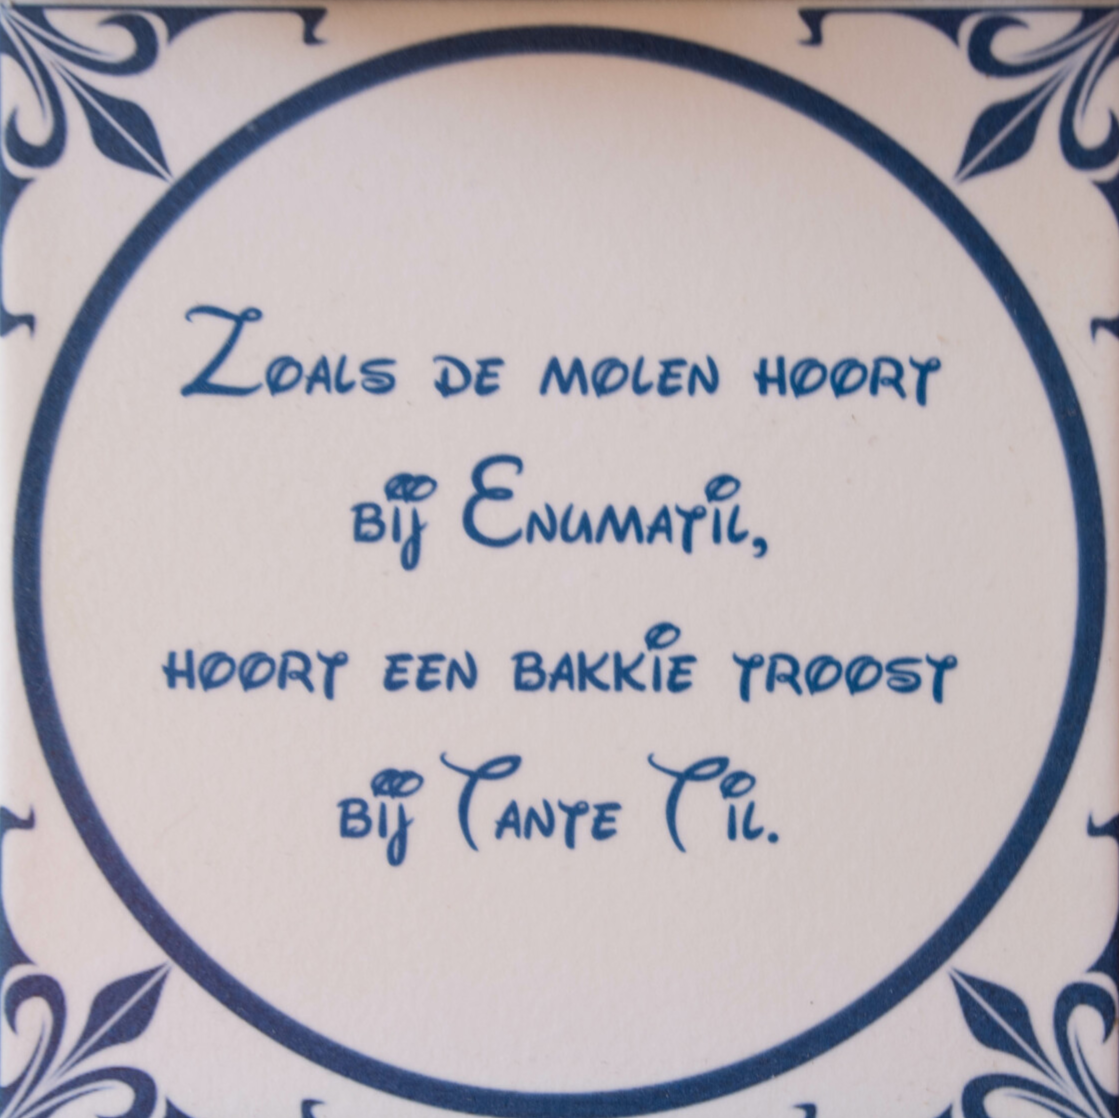 Zoals de molen hoort
bij Enumatil,
hoort een bakkie troost
bij Tante Til.